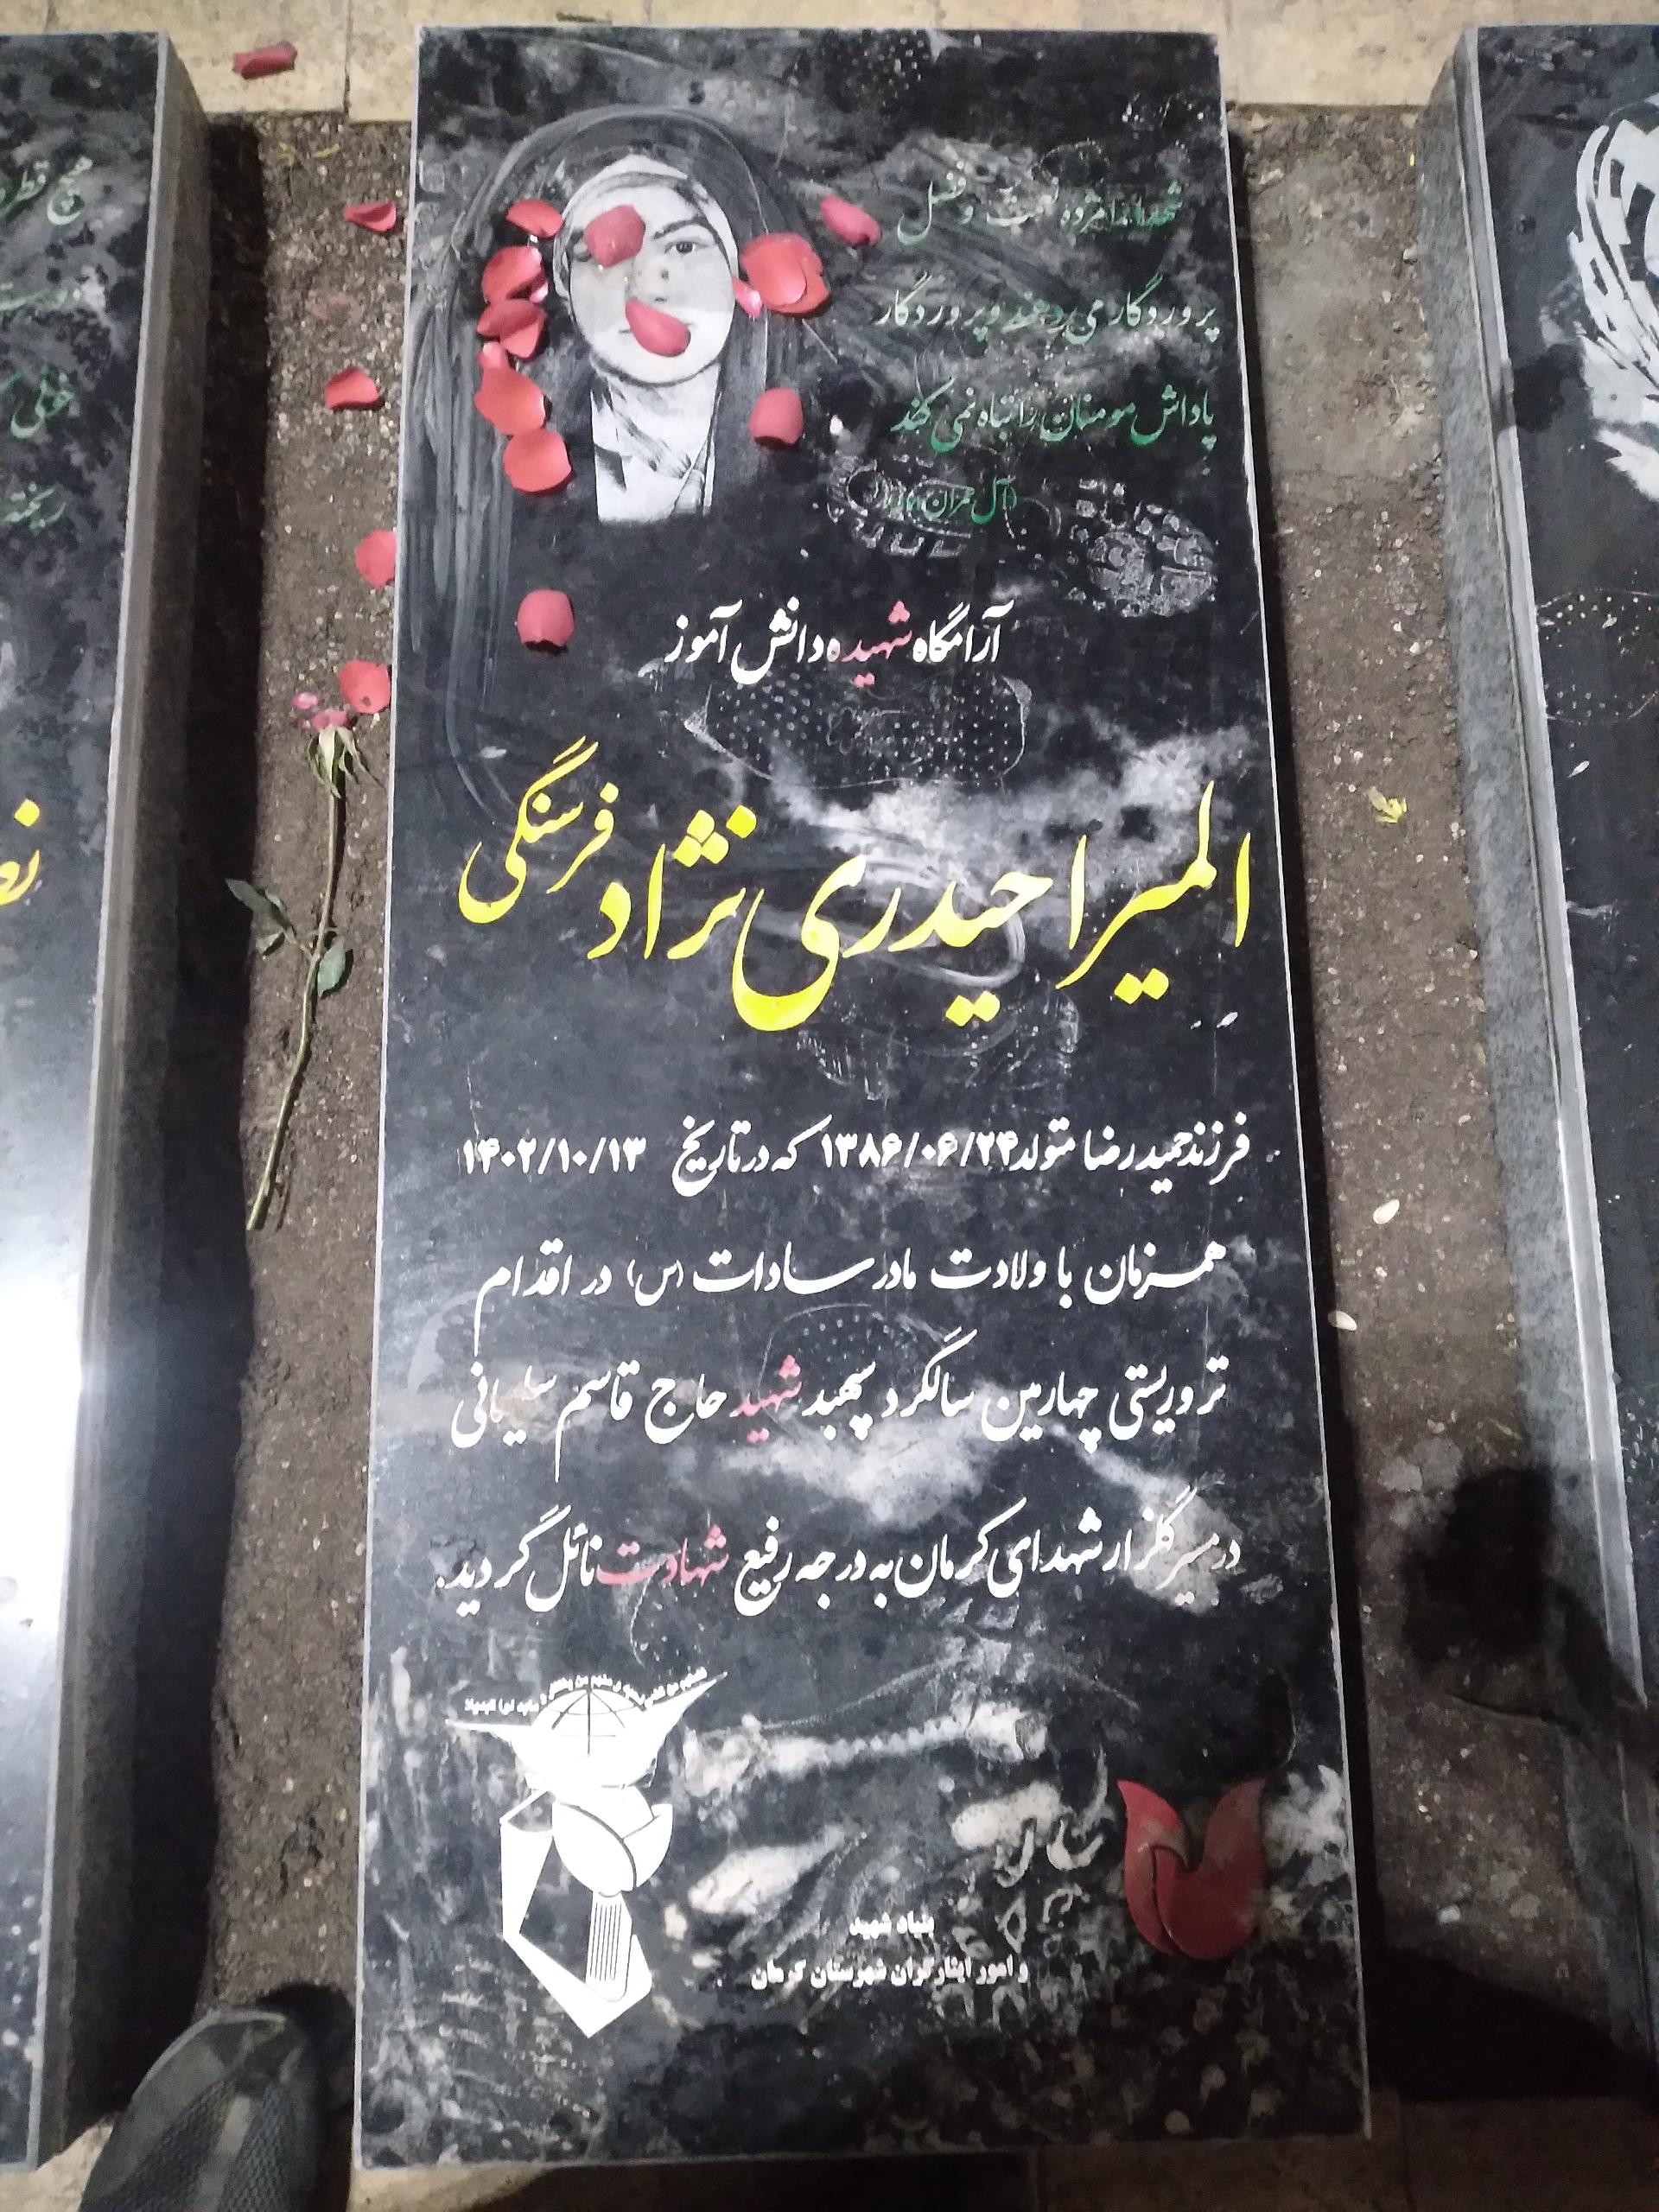 شهدا را مژده نعمت و فضل
پروردگار می‌دهند و پروردگار
پاداش مومنان را تباه نمی‌کند
(آل عمران
آرامگاه شهیده دانش آموز
المیرا حیدری نژاد فرسنگی
فرزند حمیدرضا متولد ۱۳۸۶/۰۶/۲۴ که در تاریخ ۱۴۰۲/۱۰/۱۳
همزمان با ولادت مادر سادات (س) در اقدام
تروریستی چهارمین سالگرد سپهبد شهید حاج قاسم سلیمانی
در مسیر گلزار شهدای کرمان به درجه رفیع شهادت نائل گردید.
بنیاد شهید
و امور ایثارگران شهرستان کرمان
هیچ